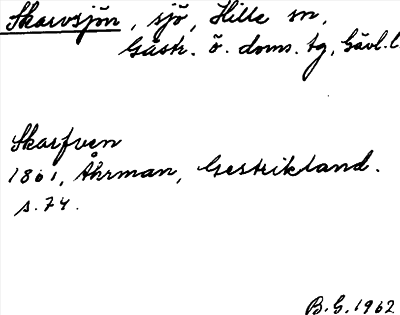 Skarvsjön, sjö, Hille sn,
Gästr. ö. doms. tg, Gävl. l.
Skarfven
1861, Åhrman, Gestrikland.
s. 74.
B.G. 1962